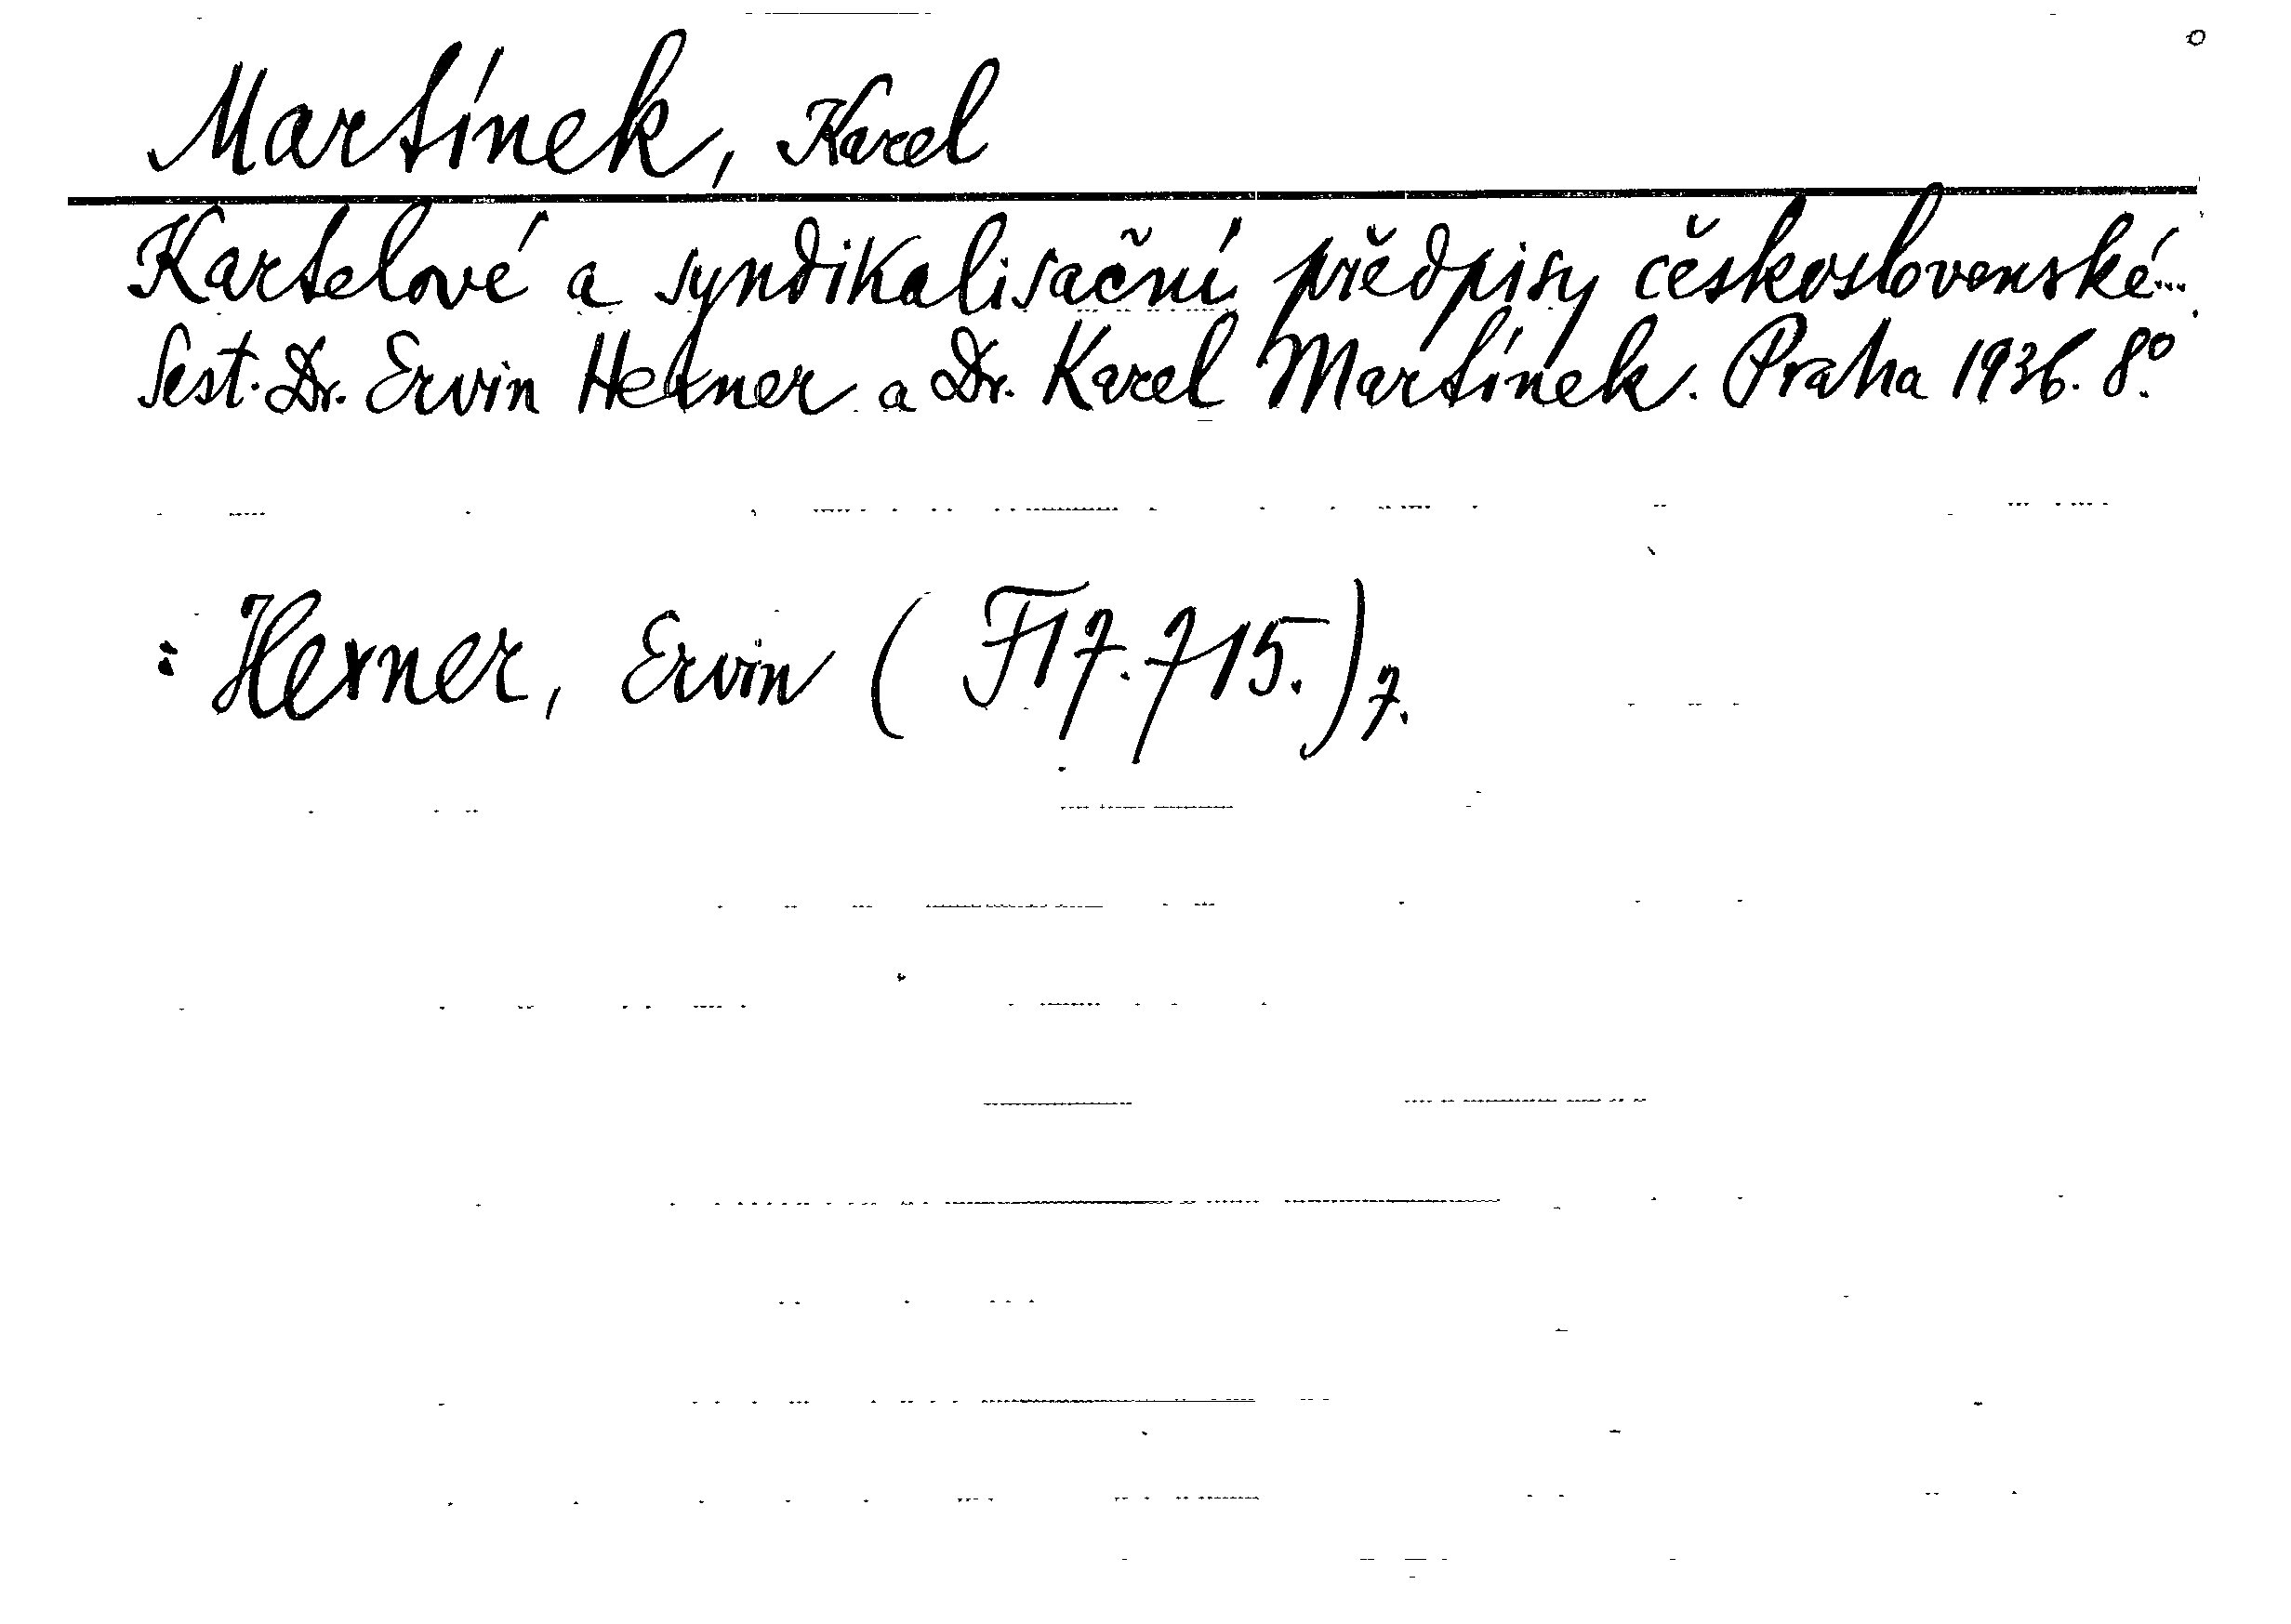 Martínek, Karel
Kartelové a syndikalisační předpisy československé...
Sest. Dr. Ervin Hexner a Dr. Karel Martínek. Praha 1936. 8º.
: Hexner, Ervin (F17.715.)7.